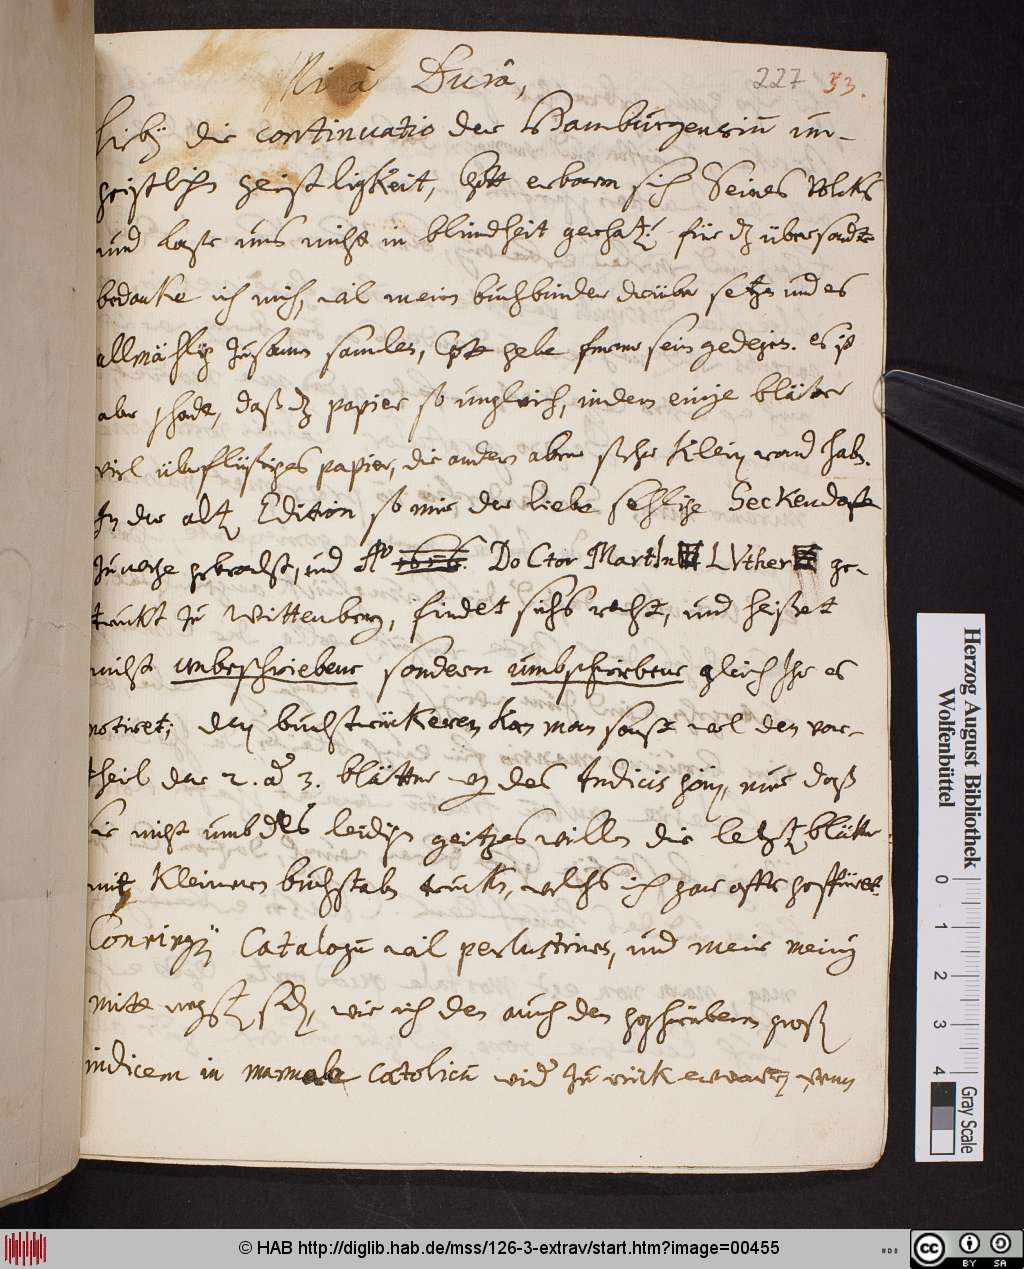 Mi â Durâ,
227 53.
hieby die continuatio der Hamburgensiu un-
geistlichen geistligkeit, Gott erbarm sich Seines Volcks
und lasse uns nicht in blindheit gerhate. für dz übersandte
bedanke ich mich, wil mein buchbinder drüber setzen und es
allmählig zusamn samlen, Gott gebe ferner sein gedeien. es ist
aber schade, daß dz papier so ungleich, indem einige blätter
viel überflüssiges papier, die andern aber sehr klein rand habn.
In der alte Edition so mir der liebe sehlige Seckendorf
zu wege gebracht, und Aº 1616. DoCtor MartIn LVther ge-
truckt zu Wittenberg, findet sichs recht, und heißet
nicht umbeschriebene sondern umbschriebene gleich Ihr es
notiret; den buchstrückeren kan man sonst wol den vor-
theil der 2. a 3. blätter des Indicis gönn, nur daß
sie nicht umb des leidign geitzes willn die letzte blätter
mit kleineren buchstabn truckn, welchs ich gar offte gespüret.
Conringy Catalogu wil perlustrires, und meine meinung
mitt negst send, wie ich den auch den geschriebenen groß
indicem in manuale Catolicu wider zurück erwarte wenn
Herzog August Bibliothek
Wolfenbüttel
0 1 2 3 4
Gray Scale
© HAB http://diglib.hab.de/mss/126-3-extrav/start.htm?image=00455
cc BY SA